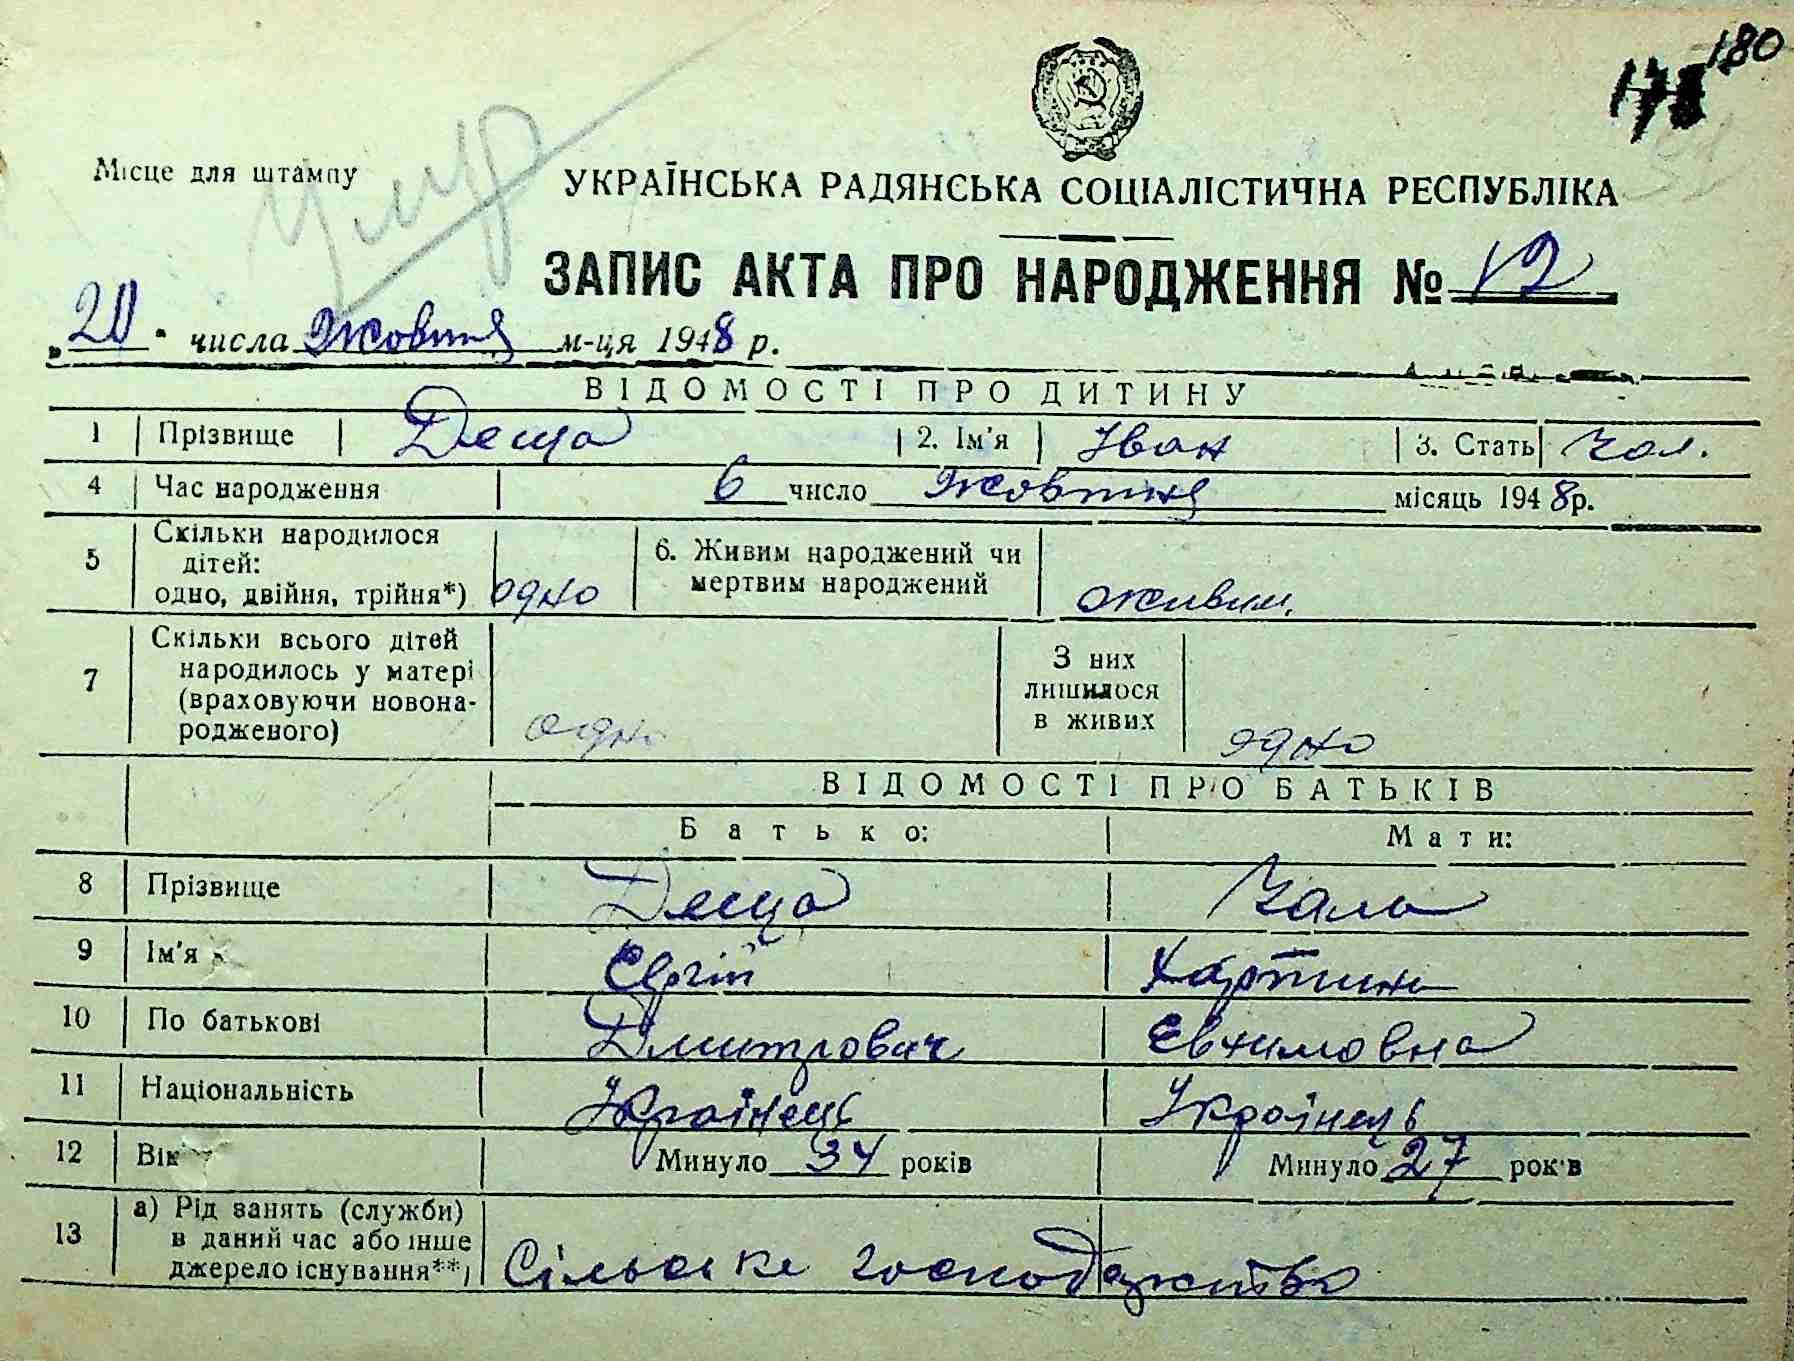 180
Умер
Місце для штампу
УКРАЇНСЬКА РАДЯНСЬКА СОЦІАЛІСТИЧНА РЕСПУБЛІКА
ЗАПИС АКТА ПРО НАРОДЖЕННЯ № 12
„20" числа Жовтня м-ця 1948 р.
ВІДОМОСТІ ПРО ДИТИНУ
1 Прізвище Деща 2. Ім'я Іван 3. Стать чол.
4 Час народження 6 число Жовтня місяць 1948 р.
5 Скільки народилося дітей: одно, двійня, трійня*) одно 6. Живим народжений чи мертвим народжений живим.
7 Скільки всього дітей народилось у матері (враховуючи новонародженого) одно З них лишилося в живих одно
ВІДОМОСТІ ПРО БАТЬКІВ
Батько: Мати:
8 Прізвище Деща
9 Ім'я Сергій
10 По батькові Дмитрович Євхимовна
11 Національність Українець Українець
12 Вік Минуло 34 років Минуло 27 років
13 а) Рід занять (служби) в даний час або інше джерело існування**) Сільське господарство